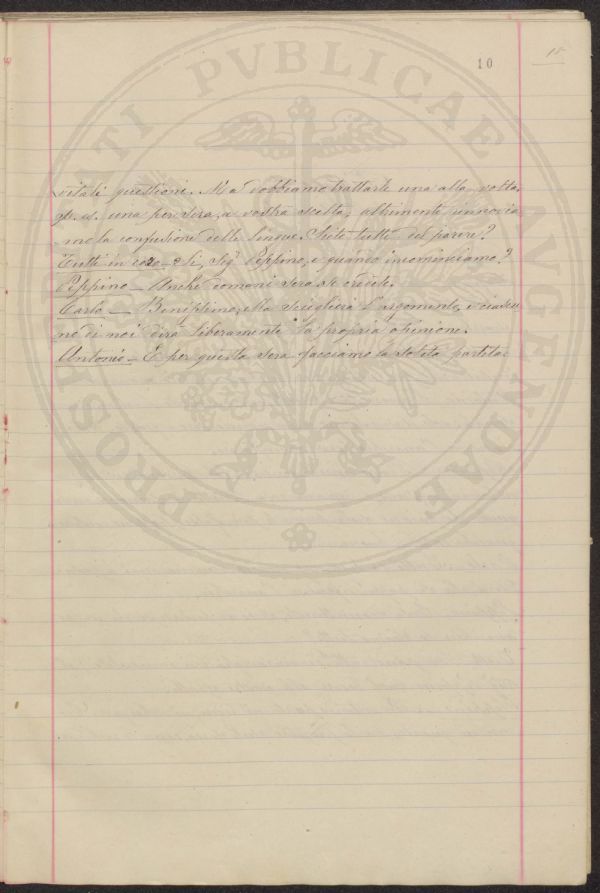 10
18
vitali questioni. Ma dobbiamo trattarle una alla volta,
una per sera, a vostra scelta, altrimenti
mo la confusione delle lingue. Siete tutti del parere?
Tutti in coro — Si, Sigr Peppino, e quando incominciamo?
Peppino — Anche domani sera se credete.
Carlo — Benissimo, ella sceglierà l'argomento, e ciascu
no di noi dirà liberamente la propria opinione.
Antonio — E per questa sera facciamo la solita partita.
PROSPERITATI PVBLICAE AVGENDAE